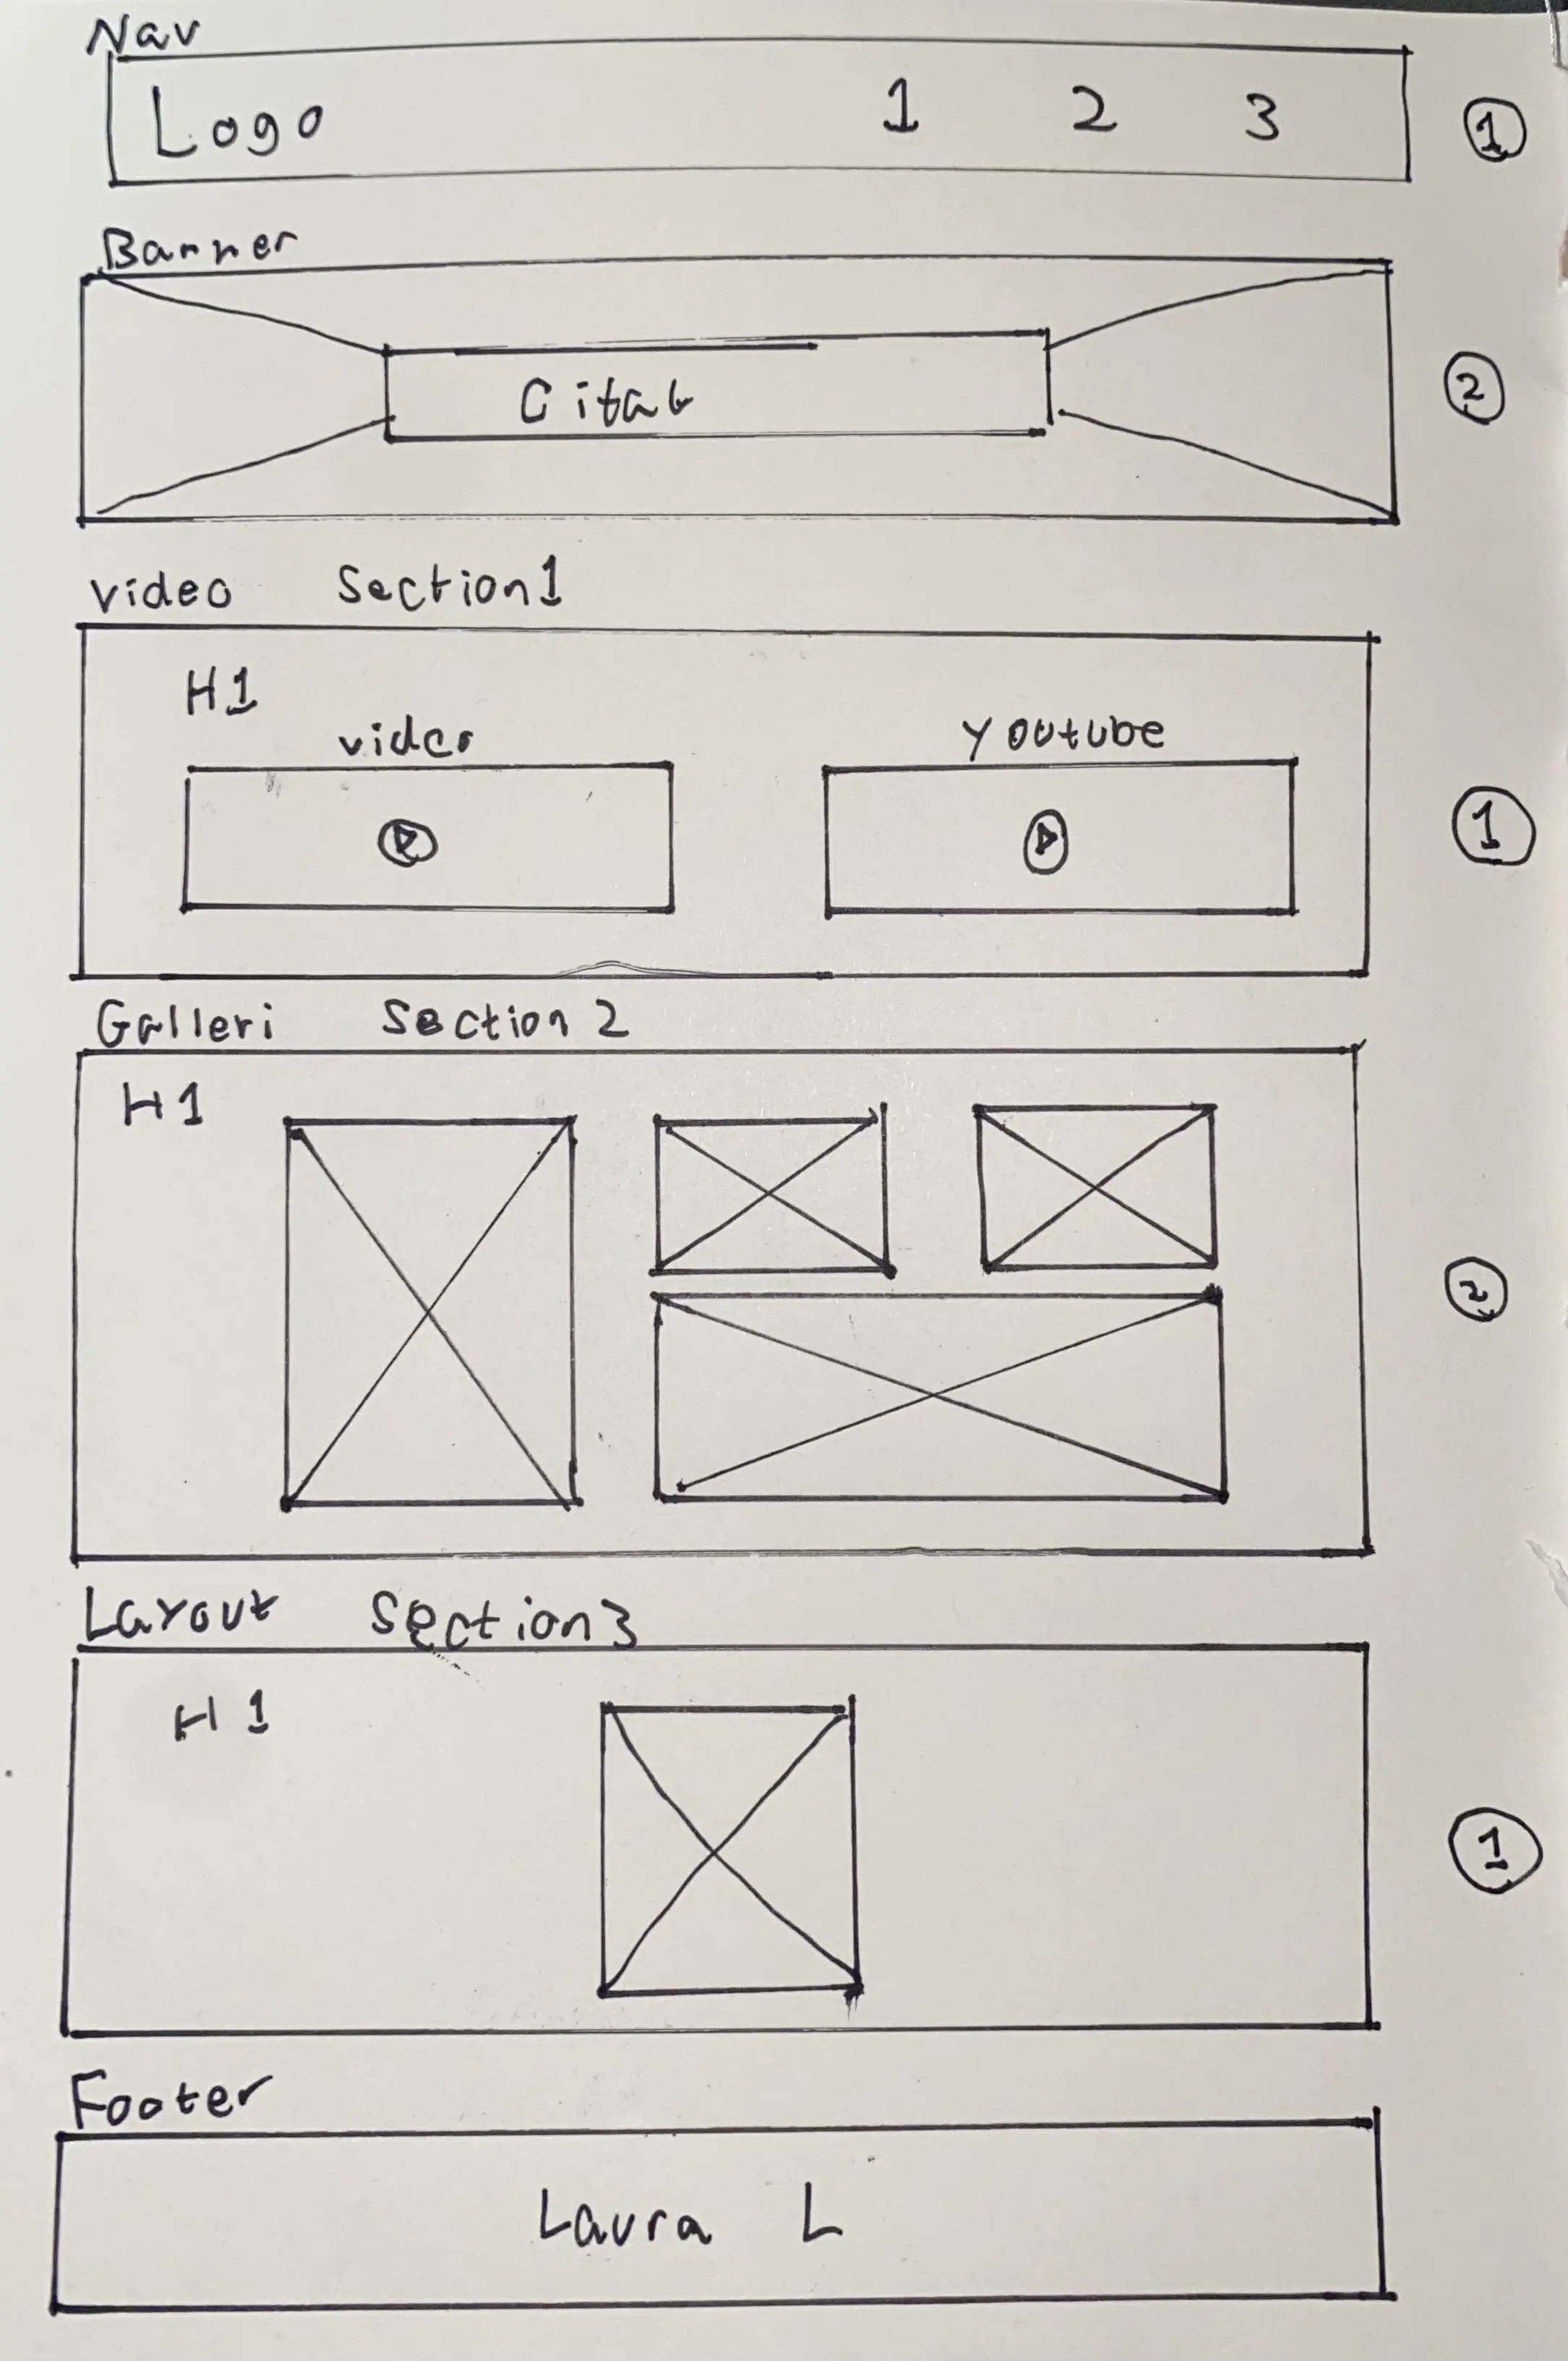 Nav
Logo 1 2 3 1
Banner
Citat 2
video Section1
H1
video youtube
1
Galleri Section 2
H1
2
Layout Section3
H1
1
Footer
Laura L